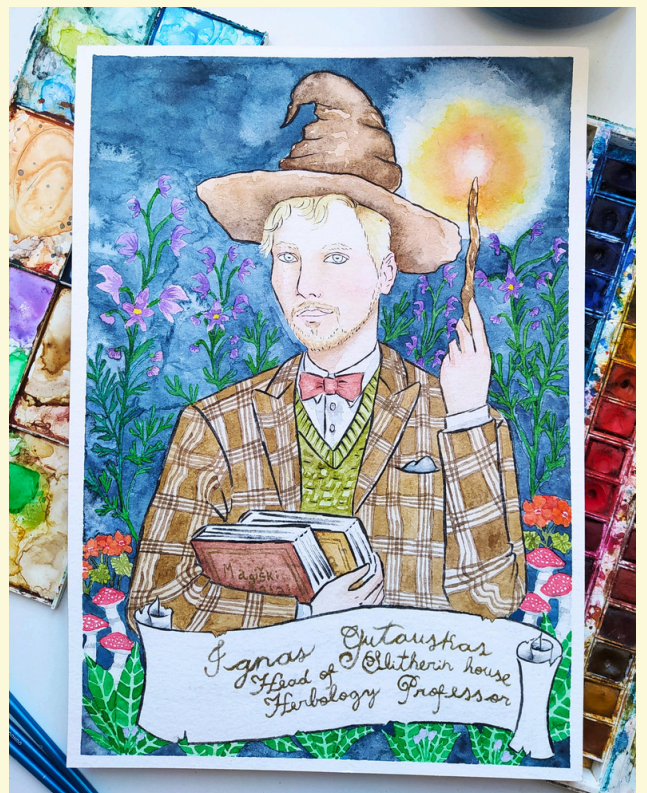 Magiški
Ignas Gutauskas
Head of Slitherin house
Herbology Professor